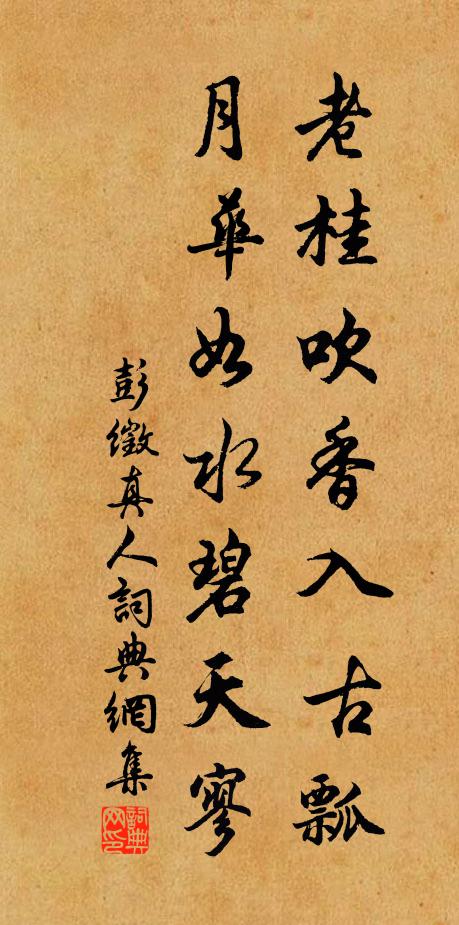 老桂吹香入古瓢
月華如水碧天寥
彭徽真人詞典網集
詞典網印